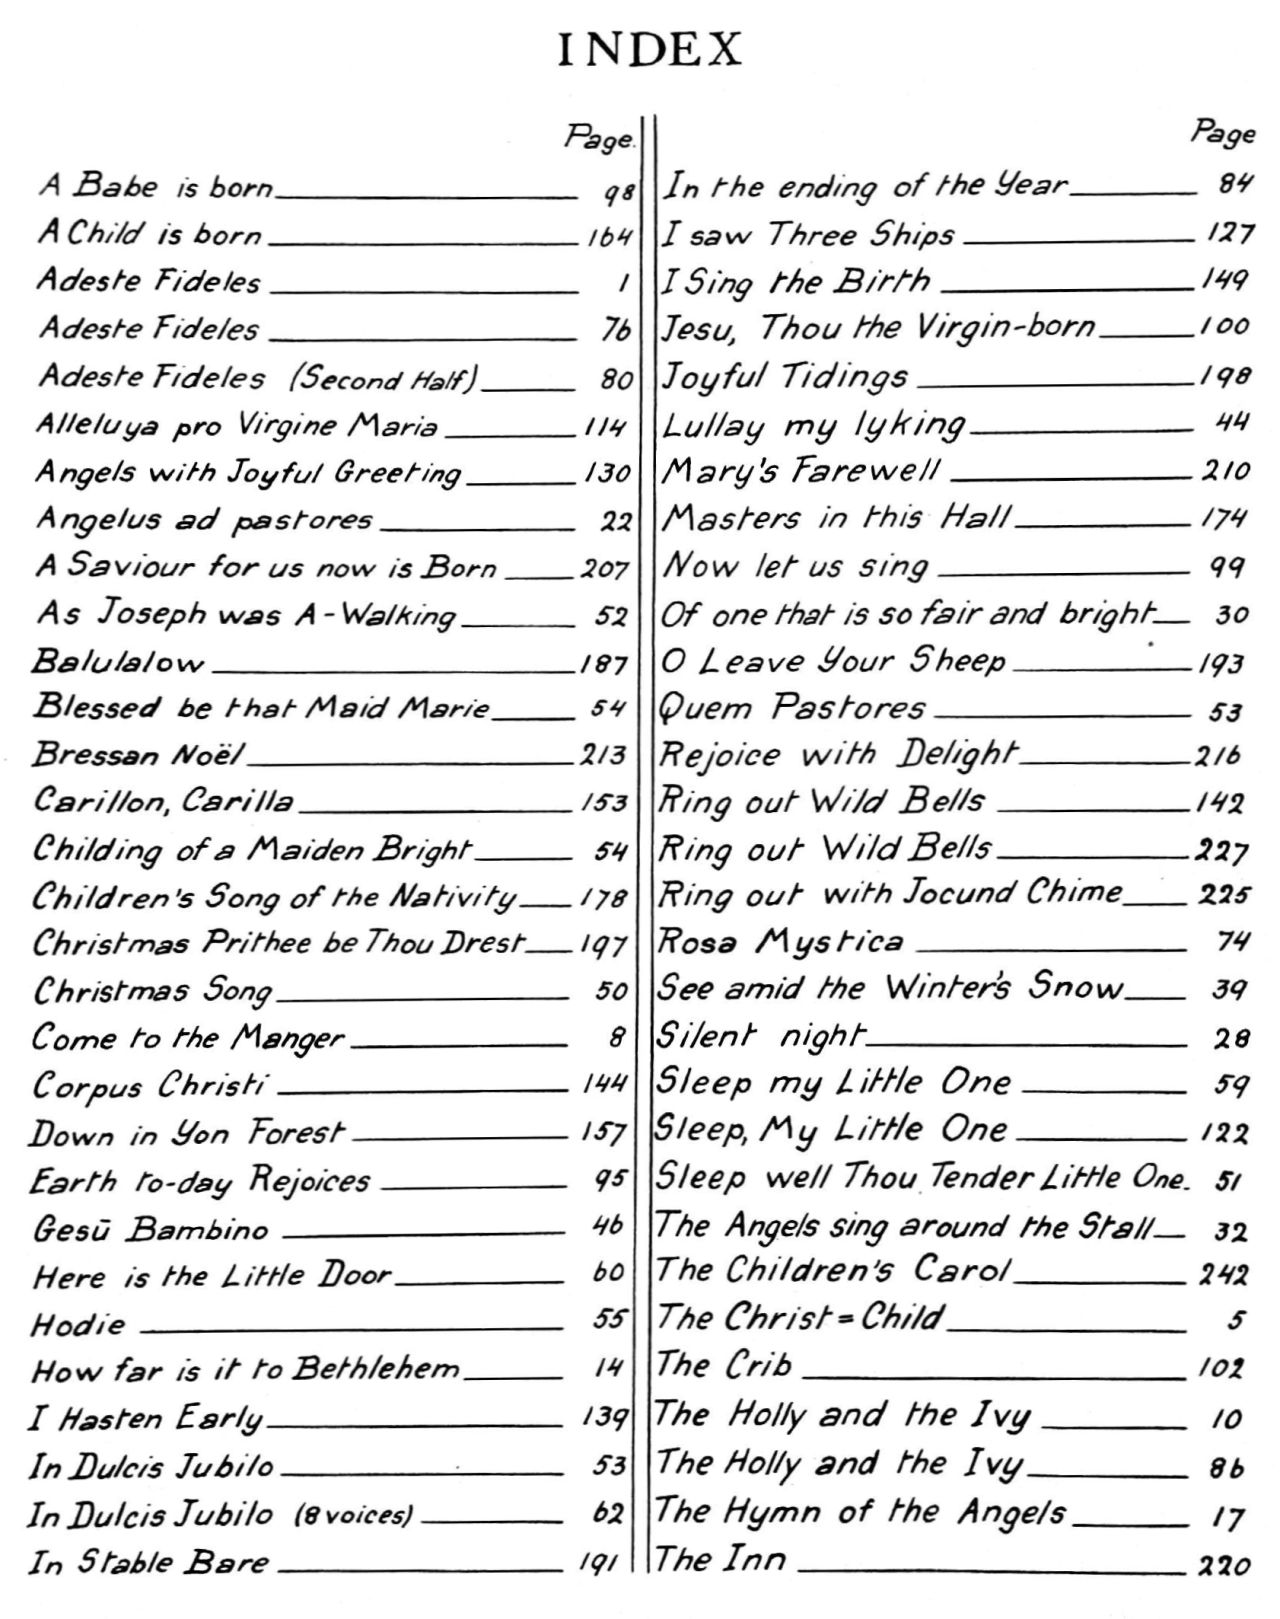 INDEX
Page.
A Babe is born 98
A Child is born 164
Adeste Fideles 1
Adeste Fideles 76
Adeste Fideles (Second Half) 80
Alleluya pro Virgine Maria 114
Angels with Joyful Greeting 130
Angelus ad pastores 22
A Saviour for us now is Born 207
As Joseph was A-Walking 52
Balulalow 187
Blessed be that Maid Marie 54
Bressan Noël 213
Carillon, Carilla 153
Childing of a Maiden Bright 54
Children's Song of the Nativity 178
Christmas Prithee be Thou Drest 197
Christmas Song 50
Come to the Manger 8
Corpus Christi 144
Down in Yon Forest 157
Earth to-day Rejoices 95
Gesū Bambino 46
Here is the Little Door 60
Hodie 55
How far is it to Bethlehem 14
I Hasten Early 139
In Dulcis Jubilo 53
In Dulcis Jubilo (8 voices) 62
In Stable Bare 191
Page
In the ending of the Year 84
I saw Three Ships 127
I Sing the Birth 149
Jesu, Thou the Virgin-born 100
Joyful Tidings 198
Lullay my lyking 44
Mary's Farewell 210
Masters in this Hall 174
Now let us sing 99
Of one that is so fair and bright 30
O Leave Your Sheep 193
Quem Pastores 53
Rejoice with Delight 216
Ring out Wild Bells 142
Ring out Wild Bells 227
Ring out with Jocund Chime 225
Rosa Mystica 74
See amid the Winter's Snow 39
Silent night 28
Sleep my Little One 59
Sleep, My Little One 122
Sleep well Thou Tender Little One. 51
The Angels sing around the Stall 32
The Children's Carol 242
The Christ=Child 5
The Crib 102
The Holly and the Ivy 10
The Holly and the Ivy 86
The Hymn of the Angels 17
The Inn 220